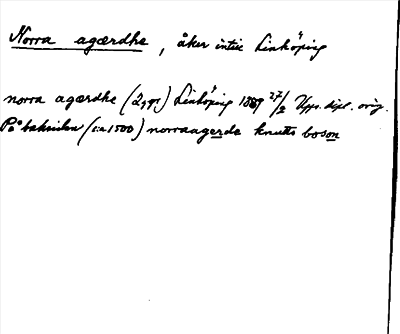 Norra agærdhe, åker intill Linköping
norra agærdhe (2 ggr) Linköping 1389 27/2 Upps. dipl. orig.
På baksidan (c:a 1500) norraagerda knuts boson